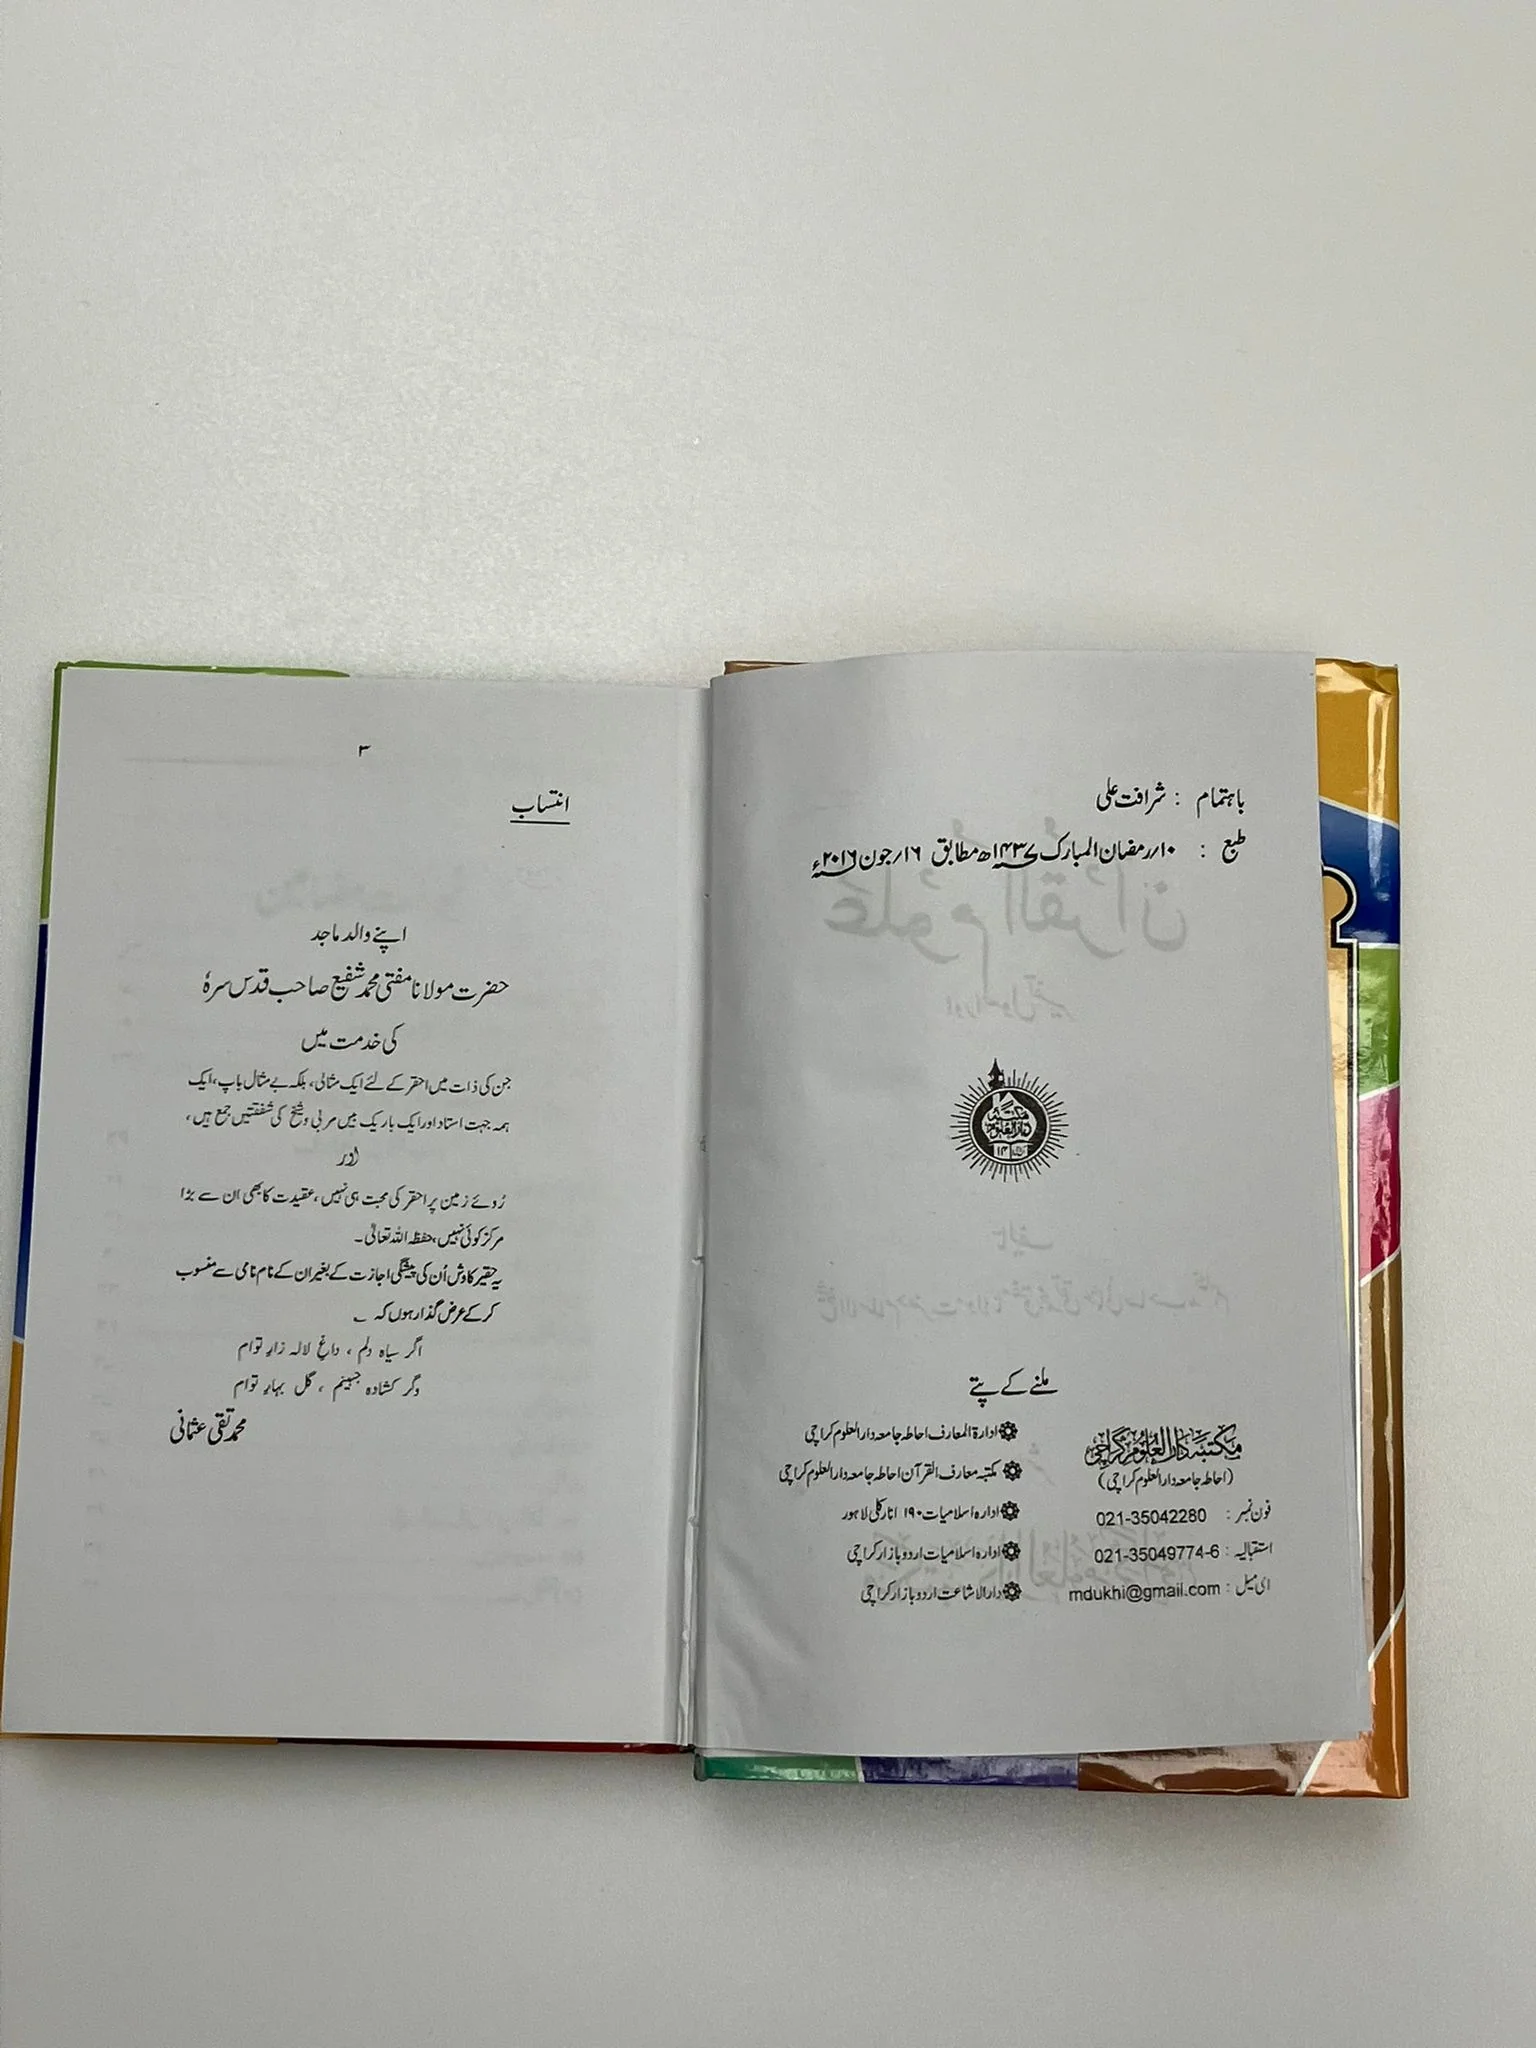 باہتمام : شرافت علی
طبع : ۱۰؍رمضان المبارک ۱۴۳۷ھ مطابق ۱۶؍جون ۲۰۱۶ء
مکتبہ
دارالعلوم
ملنے کے پتے
مکتبہ دارالعلوم کراچی
(احاطہ جامعہ دارالعلوم کراچی)
فون نمبر : 021-35042280
استقبالیہ : 021-35049774-6
ای میل : mdukhi@gmail.com
ادارۃ المعارف احاطہ جامعہ دارالعلوم کراچی
مکتبہ معارف القرآن احاطہ جامعہ دارالعلوم کراچی
ادارہ اسلامیات ۱۹۰ انارکلی لاہور
ادارہ اسلامیات اردو بازار کراچی
دارالاشاعت اردو بازار کراچی
۳
انتساب
اپنے والد ماجد
حضرت مولانا مفتی محمد شفیع صاحب قدس سرہٗ
کی خدمت میں
جن کی ذات میں احقر کے لئے ایک مثالی، بلکہ بے مثال باپ، ایک
ہمہ جہت استاد اور ایک باریک بیں مربی و شیخ کی شفقتیں جمع ہیں،
اور
رُوئے زمین پر احقر کی محبت ہی نہیں، عقیدت کا بھی ان سے بڑا
مرکز کوئی نہیں، حفظہ اللہ تعالیٰ۔
یہ حقیر کاوش اُن کی پیشگی اجازت کے بغیر ان کے نام نامی سے منسوب
کر کے عرض گذار ہوں کہ ؎
اگر سیاہ دلم ، داغِ لالہ زارِ توام
وگر کشادہ جبینم ، گل بہارِ توام
محمد تقی عثمانی